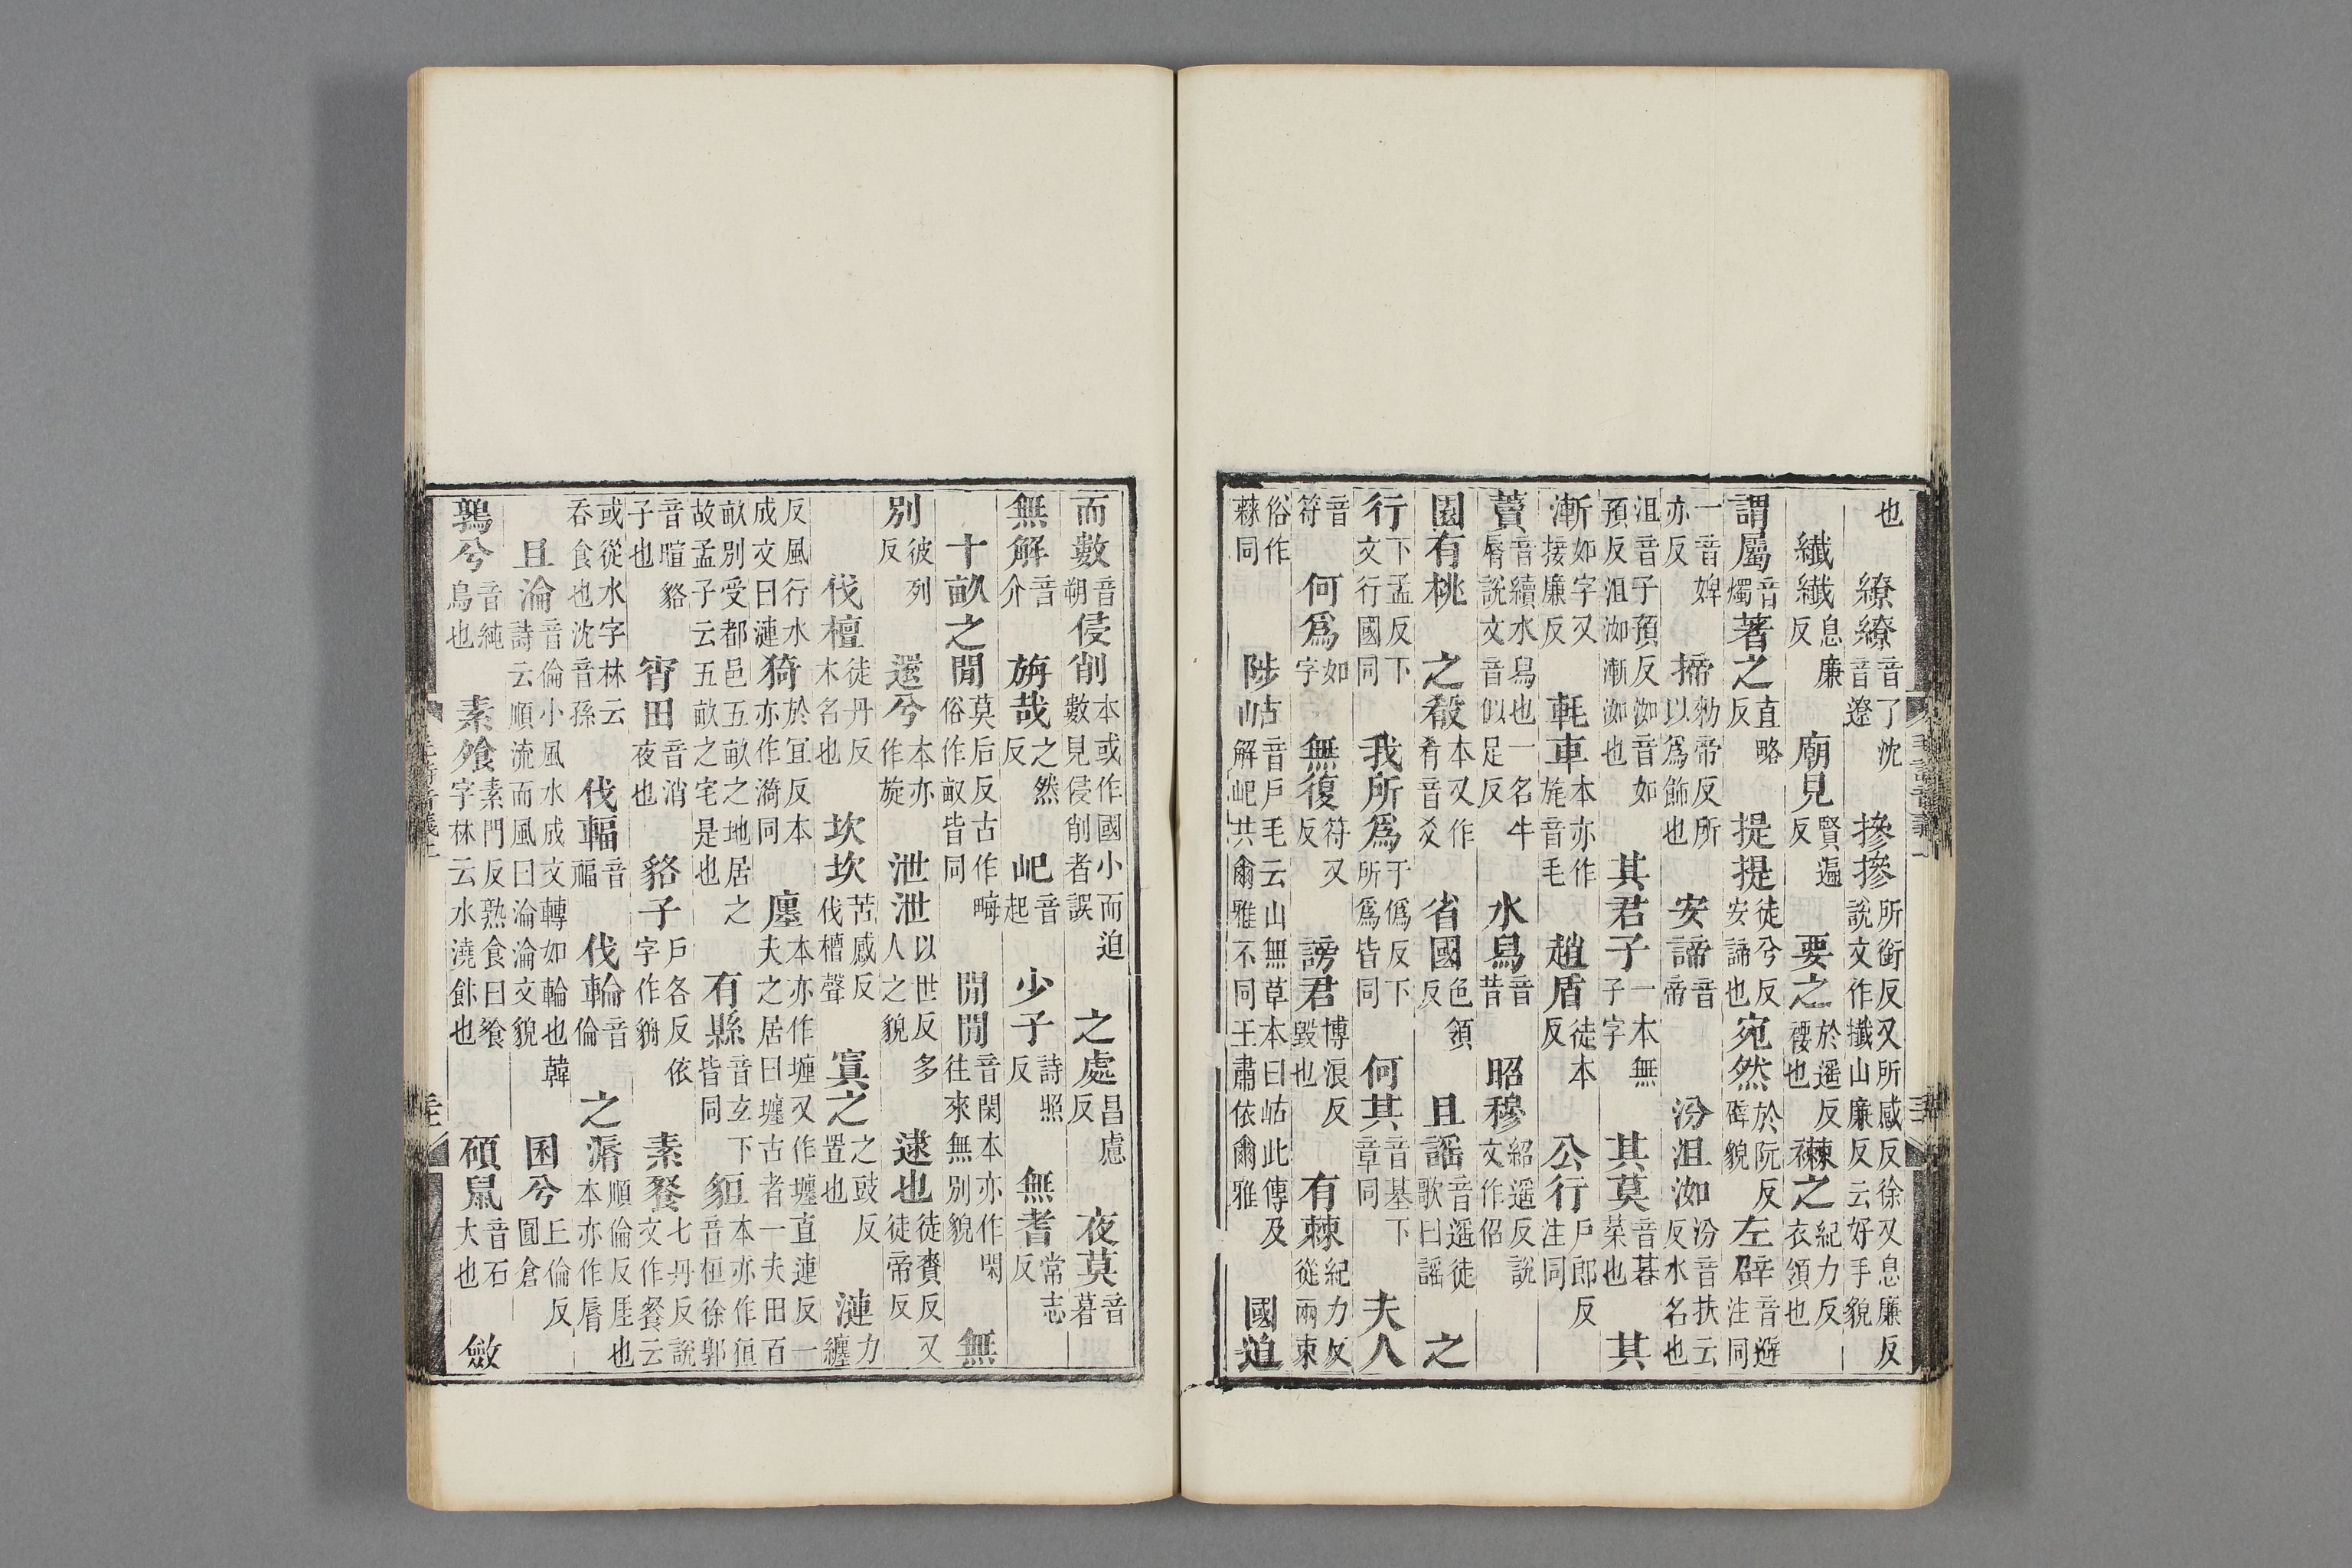 也　繚繚音了沈音遼　摻摻所銜反又所感反徐又息廉反說文作攕山廉反云好手貌
纖纖息廉反　廟見賢遍反　要之於遙反䙅也　襋之紀力反衣領也
謂屬音燭著之直略反　提提徒兮反安諦也宛然於阮反辟貌　左辟音避注同
一音婢亦反　揥勑帝反所以爲飾也　安諦音帝　汾沮洳汾音扶云反水名也
沮音子預反沮洳子預反洳音如漸洳也　其君子一本無子字　其莫音暮菜也　其
漸如字又接廉反　軞車本亦作旄音毛　趙盾徒本反　公行戶郎反注同
藚音續水舄也一名牛脣說文音似足反　水舄音昔　昭穆紹遥反說文作佋
園有桃　之殽本又作肴音爻　省國色領反　且謡音遥徒歌曰謡　之
行下孟反下文行國同　我所爲于僞反下所爲皆同　何其音基下章同　夫人
音符　何爲如字　無復符又反　謗君博浪反毀也　有棘紀力反從兩束
俗作蕀同　陟岵音戶毛云山無草木曰岵此傳及解屺共爾雅不同王肅依爾雅　國迫
而數音朔侵削本或作國小而迫數見侵削者誤　之處昌慮反　夜莫音暮
無解音介　旃哉之然反　屺音起　少子詩照反　無耆常志反
十畝之閒莫后反古作畮俗作畞皆同　閒閒音閑本亦作閑往來無別貌　無
別彼列反　還兮本亦作旋　泄泄以世反多人之貌　逮也徒賚反又徒帝反
伐檀徒丹反木名也　坎坎苦感反伐檀聲　寘之之豉反置也　漣力纏
反風行水成文曰漣　猗於宜反本亦作漪同　廛本亦作㕓又作壥直連反一夫之居曰壥古者一夫田百
畝別受都邑五畝之地居之故孟子云五畝之宅是也　有縣音玄下皆同　貆本亦作狟音桓徐郭
音暄貉子也　宵田音消夜也　貉子戶各反依字作貈　素餐七丹反說文作餐云
或從水字林云吞食也沈音孫　伐輻音福　伐輪音倫　之漘順倫反厓也本亦作脣
且淪音倫小風水成文轉如輪也韓詩云順流而風曰淪淪文貌　囷兮丘倫反圓倉
鶉兮音純鳥也　素飧素門反熟食曰飧字林云水澆飰也　碩鼠音石大也　斂